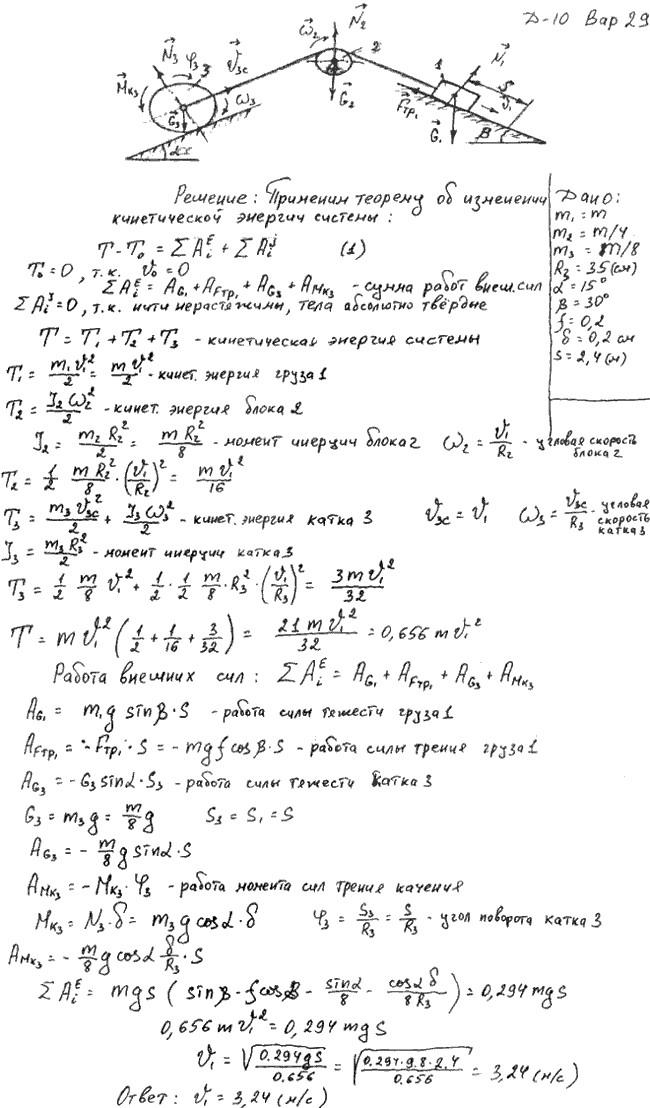 Д-10 Вар 29
N⃗₃ φ₃ 3 v⃗₃c ω⃗₂ N⃗₂ 2 N⃗₁ 1 S v⃗₁
M⃗к₃ G⃗₃ ω₃ G⃗₂ F⃗тр₁ G⃗₁
α β
Решение: Применим теорему об изменении
кинетической энергии системы:
T - T₀ = ΣAᵢᴱ + ΣAᵢᴶ (1)
T₀ = 0, т.к. v₀ = 0
ΣAᵢᴱ = A_G₁ + A_Fтр₁ + A_G₃ + A_Mк₃ - сумма работ внеш. сил
ΣAᵢᴶ = 0, т.к. нити нерастяжимы, тела абсолютно твёрдые
Дано:
m₁ = m
m₂ = m/4
m₃ = m/8
R₃ = 35 (см)
α = 15°
β = 30°
f = 0,2
δ = 0,2 см
S = 2,4 (м)
T = T₁ + T₂ + T₃ - кинетическая энергия системы
T₁ = m₁v₁²/2 = mv₁²/2 - кинет. энергия груза 1
T₂ = J₂ω₂²/2 - кинет. энергия блока 2
J₂ = m₂R₂²/2 = mR₂²/8 - момент инерции блока 2 ω₂ = v₁/R₂ - угловая скорость блока 2
T₂ = 1/2 mR₂²/8 · (v₁/R₂)² = mv₁²/16
T₃ = m₃v₃c²/2 + J₃ω₃²/2 - кинет. энергия катка 3 v₃c = v₁ ω₃ = v₃c/R₃ - угловая скорость катка 3
J₃ = m₃R₃²/2 - момент инерции катка 3
T₃ = 1/2 m/8 v₁² + 1/2 · 1/2 m/8 · R₃² · (v₁/R₃)² = 3mv₁²/32
T = mv₁² (1/2 + 1/16 + 3/32) = 21mv₁²/32 = 0,656 mv₁²
Работа внешних сил: ΣAᵢᴱ = A_G₁ + A_Fтр₁ + A_G₃ + A_Mк₃
A_G₁ = m₁g sinβ · S - работа силы тяжести груза 1
A_Fтр₁ = -Fтр₁ · S = -mgf cosβ · S - работа силы трения груза 1
A_G₃ = -G₃ sinα · S₃ - работа силы тяжести катка 3
G₃ = m₃g = m/8 g S₃ = S₁ = S
A_G₃ = - m/8 g sinα · S
A_Mк₃ = -Mк₃ · φ₃ - работа момента сил трения качения
Mк₃ = N₃ · δ = m₃g cosα · δ φ₃ = S₃/R₃ = S/R₃ - угол поворота катка 3
A_Mк₃ = - m/8 g cosα δ/R₃ · S
ΣAᵢᴱ = mgs (sinβ - f cosβ - sinα/8 - cosα δ/8R₃) = 0,294 mgs
0,656 mv₁² = 0,294 mgs
v₁ = √(0.294gS/0.656) = √(0.294·9.8·2.4/0.656) = 3,24 (м/с)
Ответ: v₁ = 3,24 (м/с)